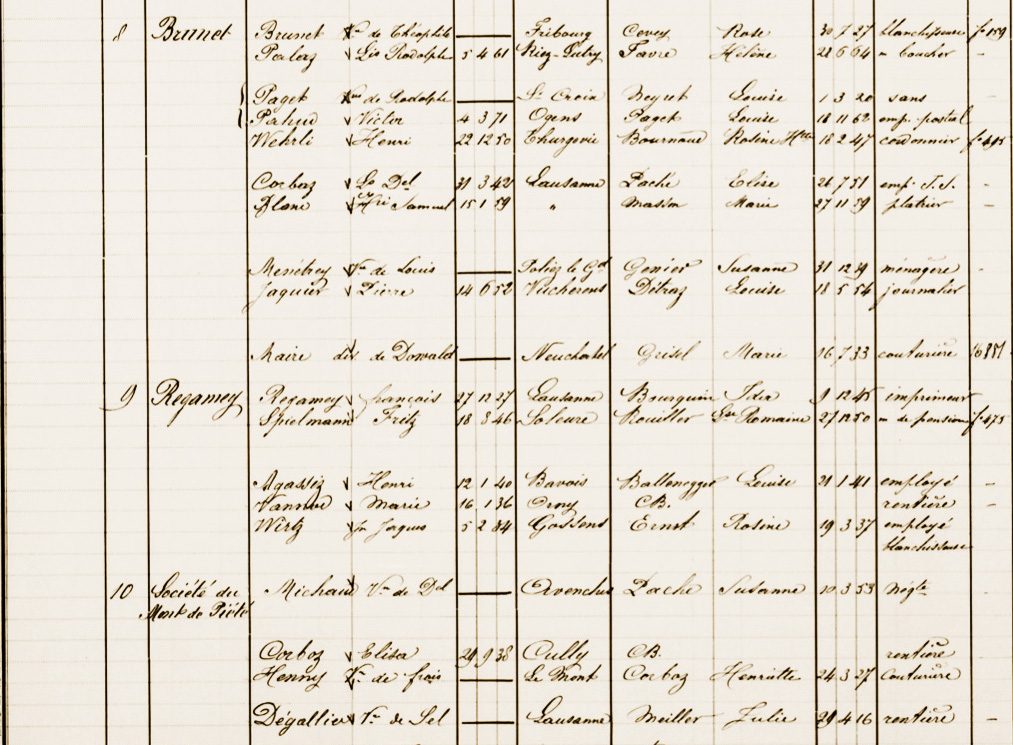 8 Brunet Brunet Vve de Théophile — Fribourg Covey Rose 30 7 27 blanchisseuse f. 159
Lis Rodolphe 5 4 61 Riez-Lutry Favre Hélène 22 6 64 m boucher -
Paget Vve de Rodolphe — Ste Croix Neyret Louise 1 3 20 sans -
Pahud Victor 4 3 71 Ogens Paget Louise 18 11 62 emp. postal
Wehrli Henri 22 12 50 Thurgovie Bournoud Rosine Htte 18 2 47 cordonnier f. 415
Corboz Ls Del 31 3 42 Lausanne Paché Elise 26 7 51 emp. J.S. -
Blanc Hri Samuel 15 1 59 " Masson Marie 27 11 59 platrier -
Menétrey Vve de Louis — Poliez le Gd Genier Susanne 31 12 19 ménagère -
Jaquier Pierre 14 6 52 Vucherens Détraz Louise 18 5 54 journalier
Maire div de Dowald — Neuchatel Grisel Marie 16 7 33 couturière
9 Regamey Regamey françois 27 12 27 Lausanne Bourquin Ida 9 12 45 imprimeur
Spielmann Fritz 18 8 46 Soleure Rouiller Romaine 27 12 50 m de pension f. 475
Agassiz Henri 12 1 40 Bavois Ballenegger Louise 21 1 41 employé -
Vannod Marie 16 1 36 Orny CB. rentière -
Wirtz fs Jaques 5 2 84 Gossens Ernst Rosine 19 3 37 employé
blanchisseuse
10 Société du Michaud Vve de Dd — Avenches Paché Susanne 10 3 53 Négte
Mont de Piété
Corboz Elisa 29 9 38 Cully CB. rentière
Henny Vve de frois — Le Mont Corboz Henriette 24 3 27 Couturière
Dégallier Vve de Sel — Lausanne Meiller Julie 29 4 16 rentière -